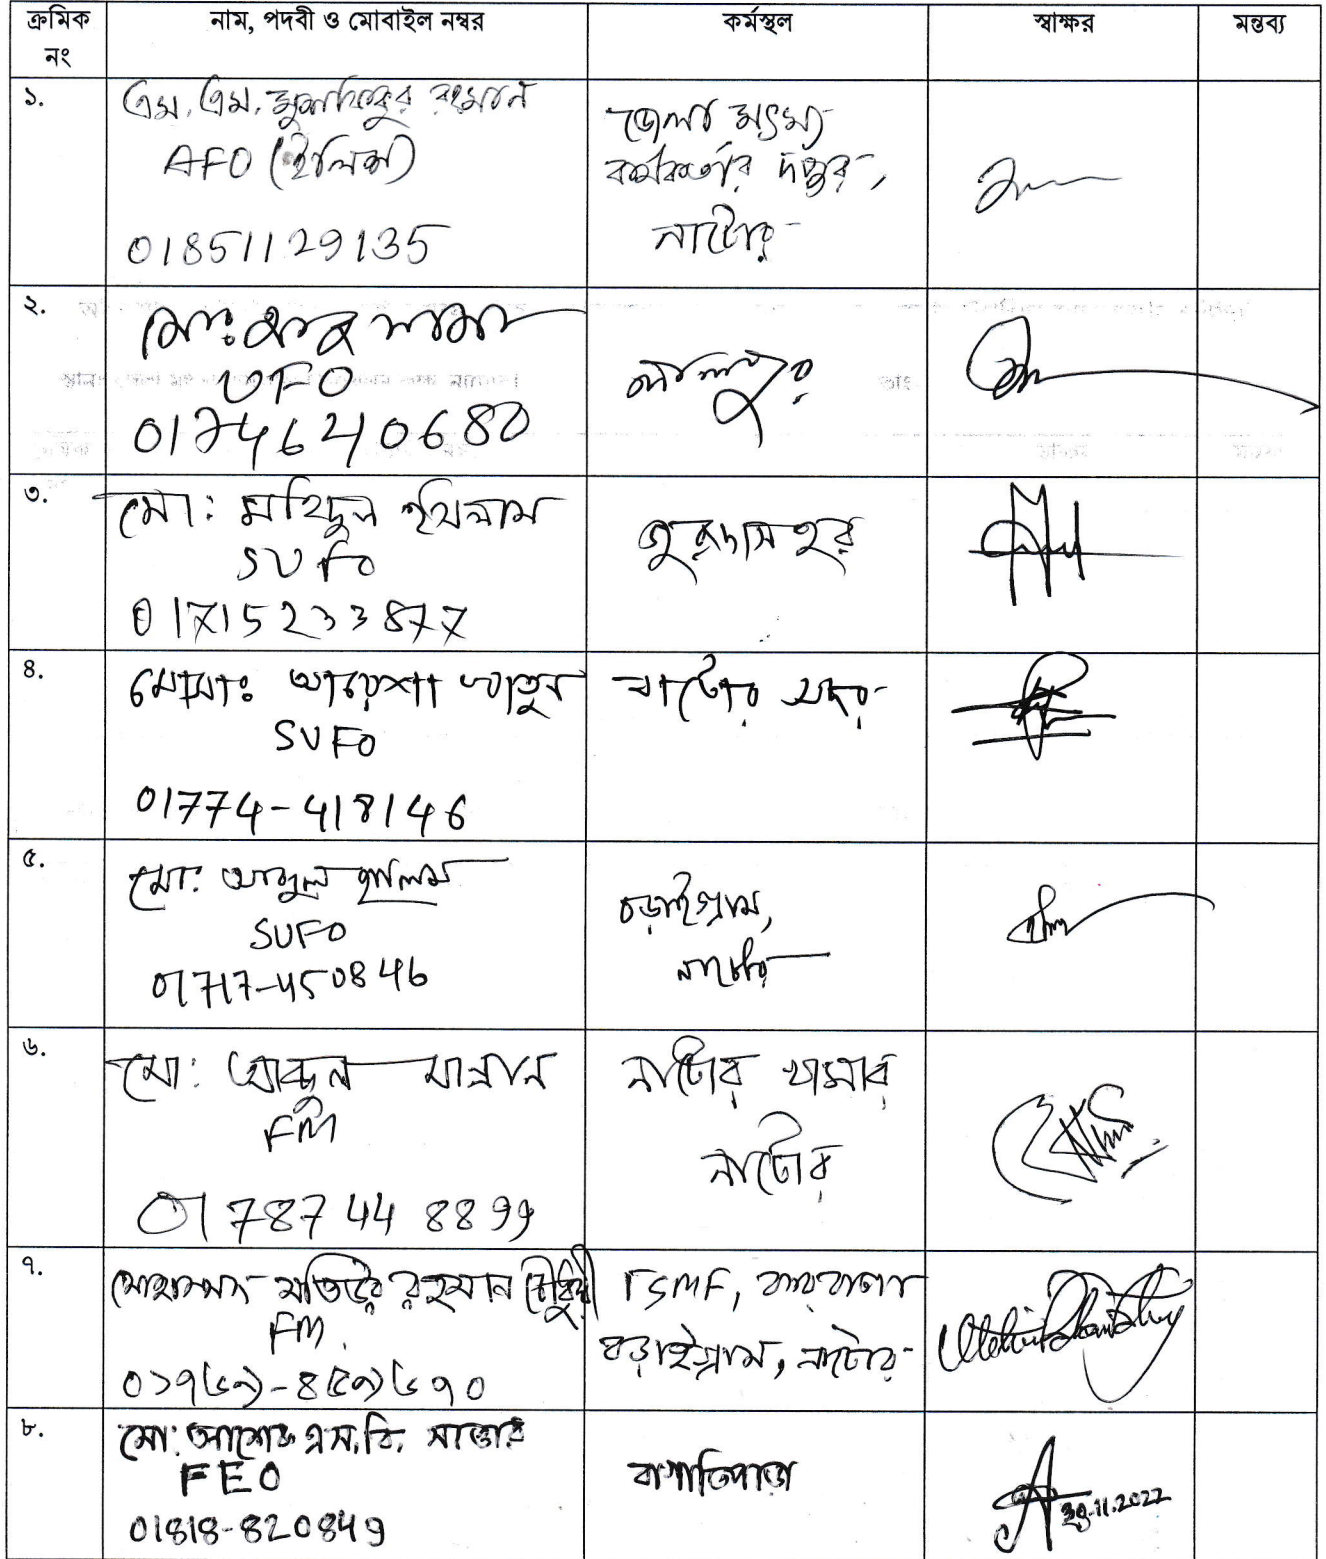 ক্রমিক নং
নাম, পদবী ও মোবাইল নম্বর
কর্মস্থল
স্বাক্ষর
মন্তব্য
১.
এম. এম. রহমান
AFO (ইলিশ)
01851129135
জেলা মৎস্য
কর্মকর্তার দপ্তর,
নাটোর
২.
মোঃ আবু সামা
UFO
01746240680
লালপুর
৩.
মো: মহিদুল ইসলাম
SUFO
01715233877
৪.
মোসাঃ আয়েশা খাতুন
SUFO
01774-418146
নাটোর সদর
৫.
মো: আব্দুল হালিম
SUFO
01717-450846
বড়াইগ্রাম,
নাটোর
৬.
মো: আব্দুল মান্নান
FM
01787448899
নাটোর খামার
নাটোর
৭.
মোহাম্মদ মতিউর রহমান চৌধুরী
FM
FSMF,
বড়াইগ্রাম, নাটোর
৮.
মো: এস.বি. সাত্তার
FEO
01818-820849
বাগাতিপাড়া
30.11.2022